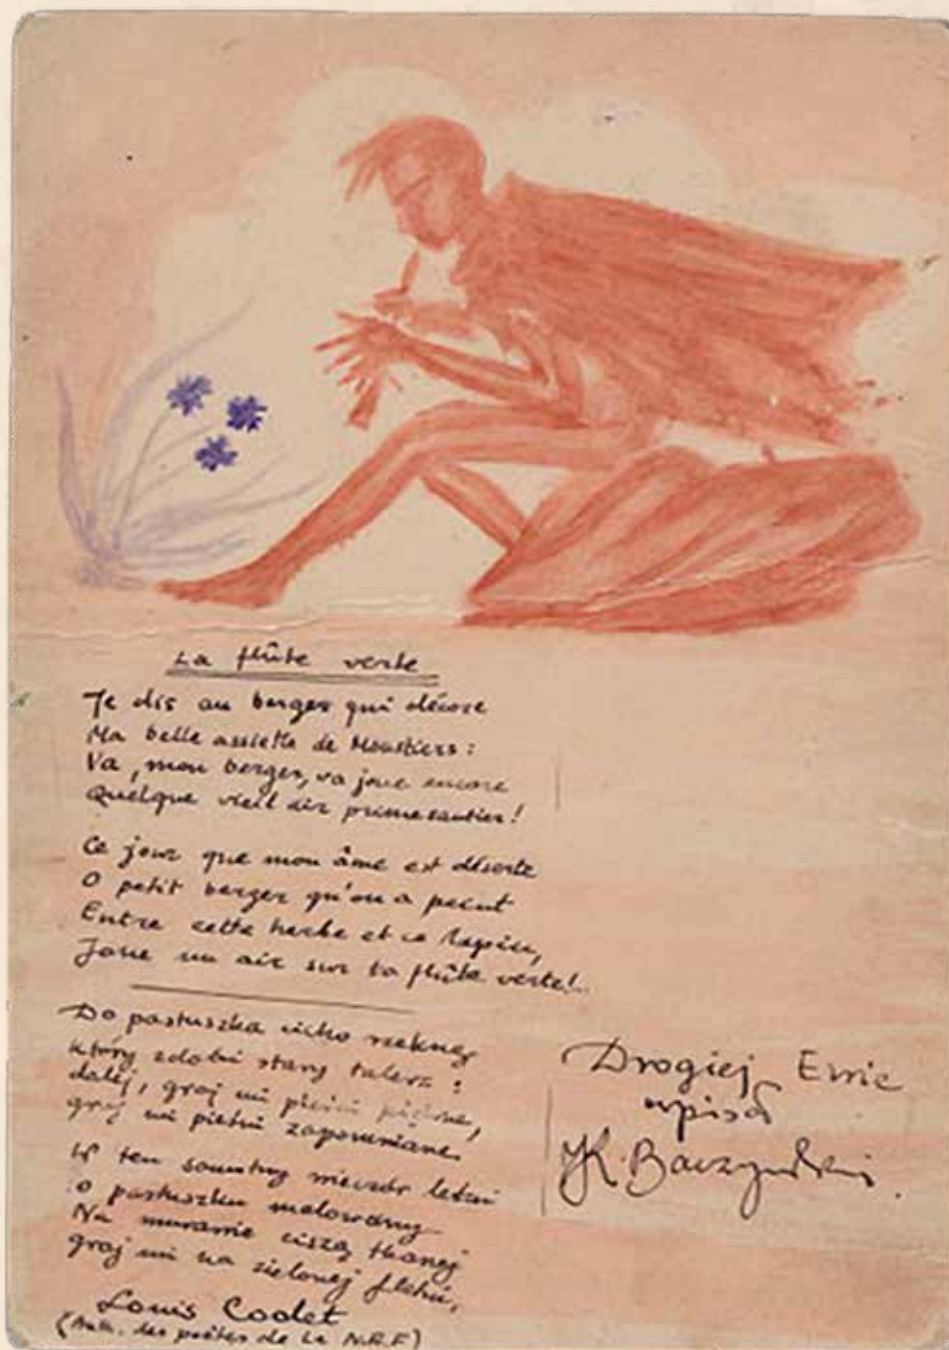 La flûte verte
Je dis au berger qui décore
Ma belle assiette de Moustiers :
Va, mon berger, va joue encore
Quelque vieil air primesautier!
Ce jour que mon âme est déserte
O petit berger qu'on a peint
Entre cette herbe et ce lapin,
Joue un air sur ta flûte verte!..
Do pastuszka cicho rzeknę
który zdobi stary talerz :
dalej, graj mi pieśni piękne,
graj mi pieśni zapomniane.
W ten samotny wieczór letni
o pastuszku malowany
Na murawie ciszą tkanej
graj mi na zielonej fletni,
Louis Codet
(Anth. des poètes de la N.R.F)
Drogiej Ewie
wpisał
JK. Baczyński.